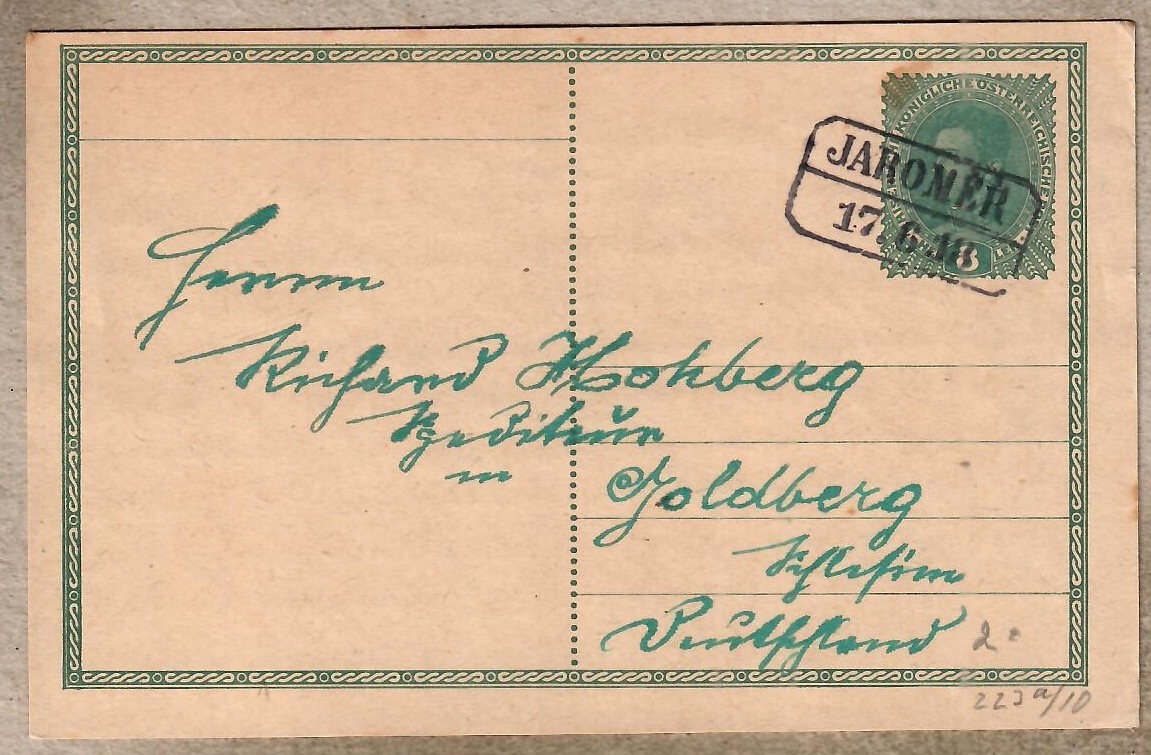 KÖNIGLICHE ÖSTERREICHISCHE
JAROMĚR
17.6.18
8
Herrn
Richard Hohberg
Spediteur
in
Goldberg
Schlesien
Deutschland
2.
223a/10